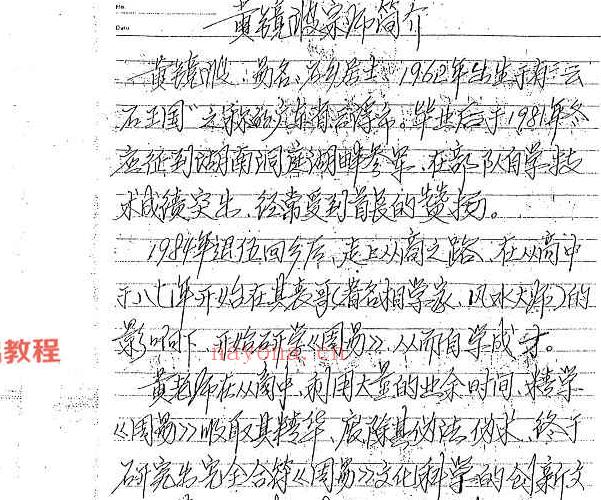 No.
Date
黄镜波宗师简介
黄镜波、易名、石乡居士、1962年出生于有"云
石王国"之称的广东省云浮市。毕业后于1981年冬
应征到湖南洞庭湖畔参军、在部队自学技
术成绩突出、经常受到首长的赞扬。
1984年退伍回乡后、走上从商之路、在从商中
于八七年开始在其表哥(著名相学家、风水大师)的
影响下、开始研学《周易》、从而自学成才。
黄老师在从商中、利用大量的业余时间、精学
《周易》吸取其精华、废除其伪法伪术、终于
研究出完全合符《周易》文化科学的创新文
教程
nayona.cn